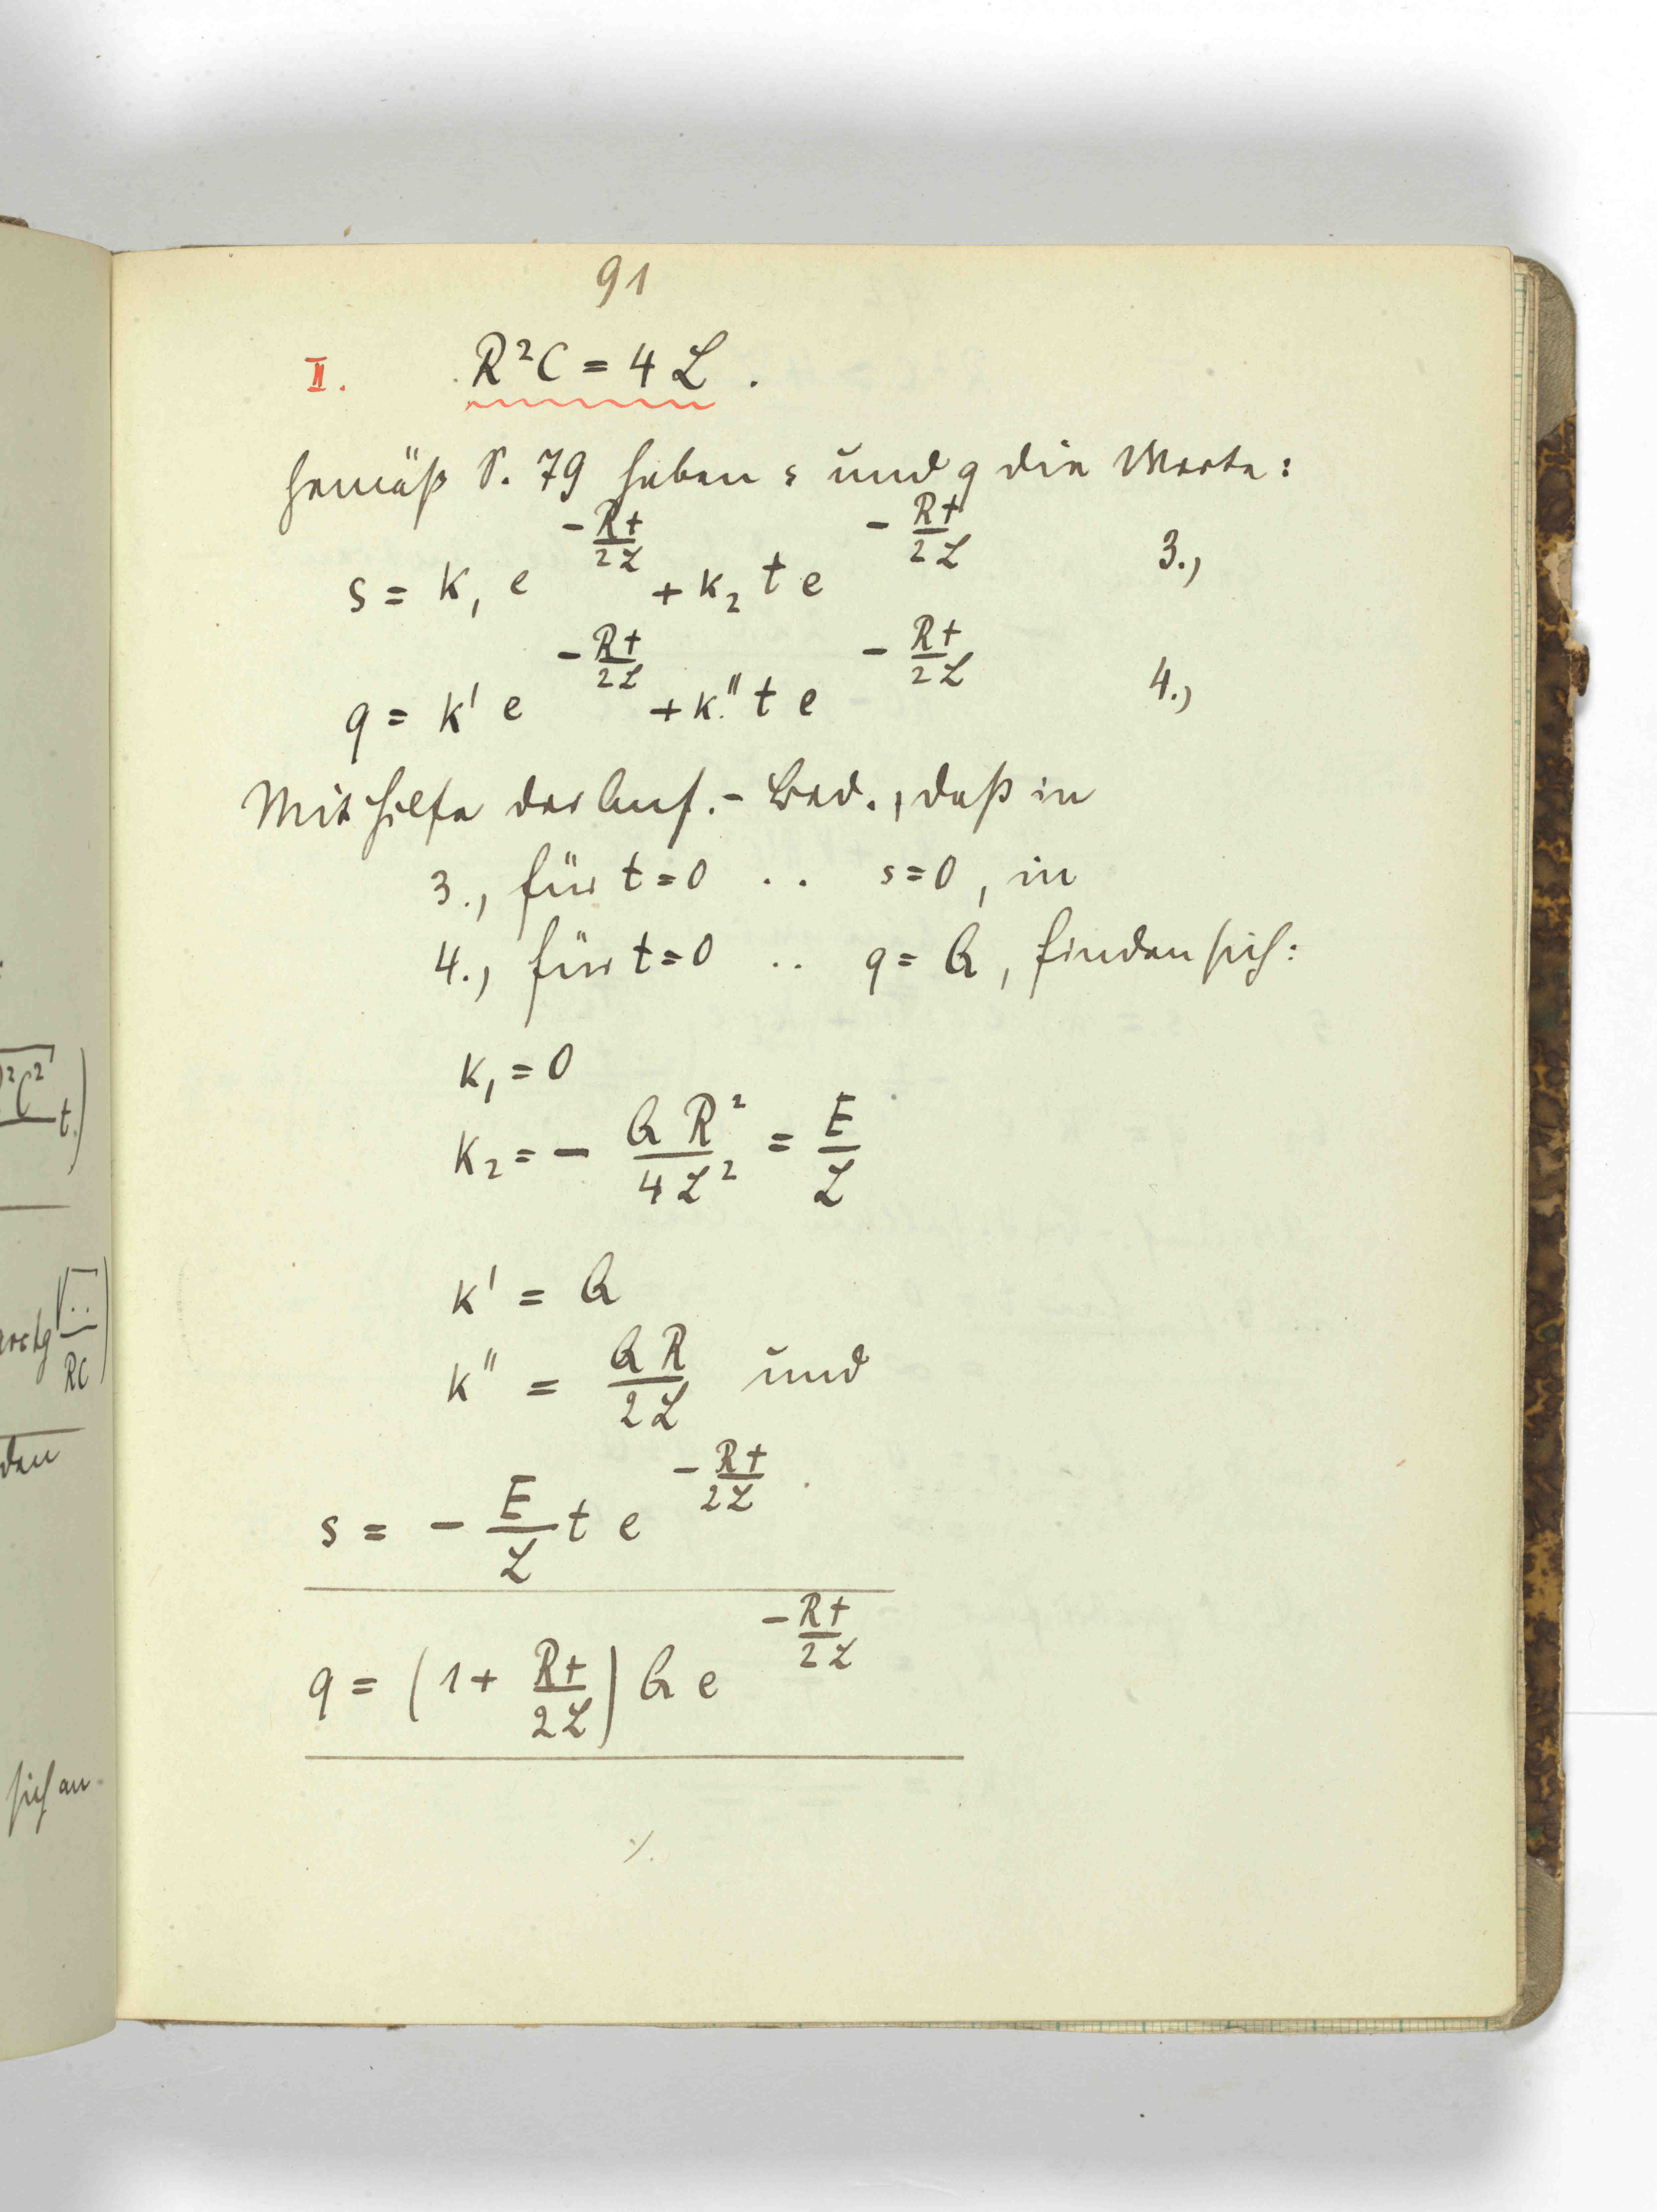 91
II. R²C = 4 L.
Gemäß S. 79 haben s und q die Werte:
s = K₁ e^(-Rt/2L) + K₂ t e^(-Rt/2L) 3.,
q = K' e^(-Rt/2L) + K'' t e^(-Rt/2L) 4.,
Mit Hilfe der Anf.-Bed., daß in
3., für t=0 .. s=0, in
4., für t=0 .. q=Q, finden sich:
K₁ = 0
K₂ = - QR²/4L² = E/L
K' = Q
K'' = QR/2L und
s = - E/L t e^(-Rt/2L)
q = (1 + Rt/2L) Q e^(-Rt/2L)
./.
²C²
t.)
arctg √..
RC)
den
sich an